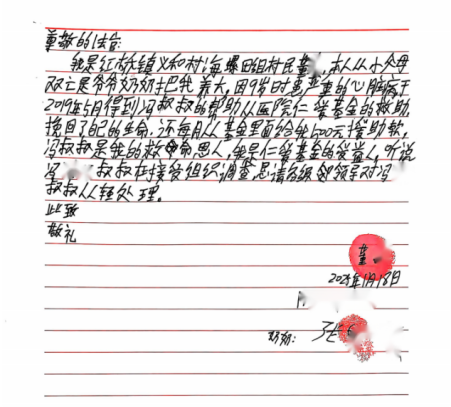 尊敬的法官:
我是红旗镇义和村海堰田组村民董，本人从小父母
双亡是爷爷奶奶把我养大，因当时患严重的心脏病于
2019年5月得到冯叔叔的帮助从医院仁爱基金的救助
挽回了自己的生命，还每月从基金里面给我1500元援助款，
冯叔叔是我的救命恩人，我是仁爱基金的受益人，听说
冯 叔叔在接受组织调查，恳请各级领导对冯
叔叔从轻处理。
此致
敬礼
董
2025年1月18日
奶奶: 张